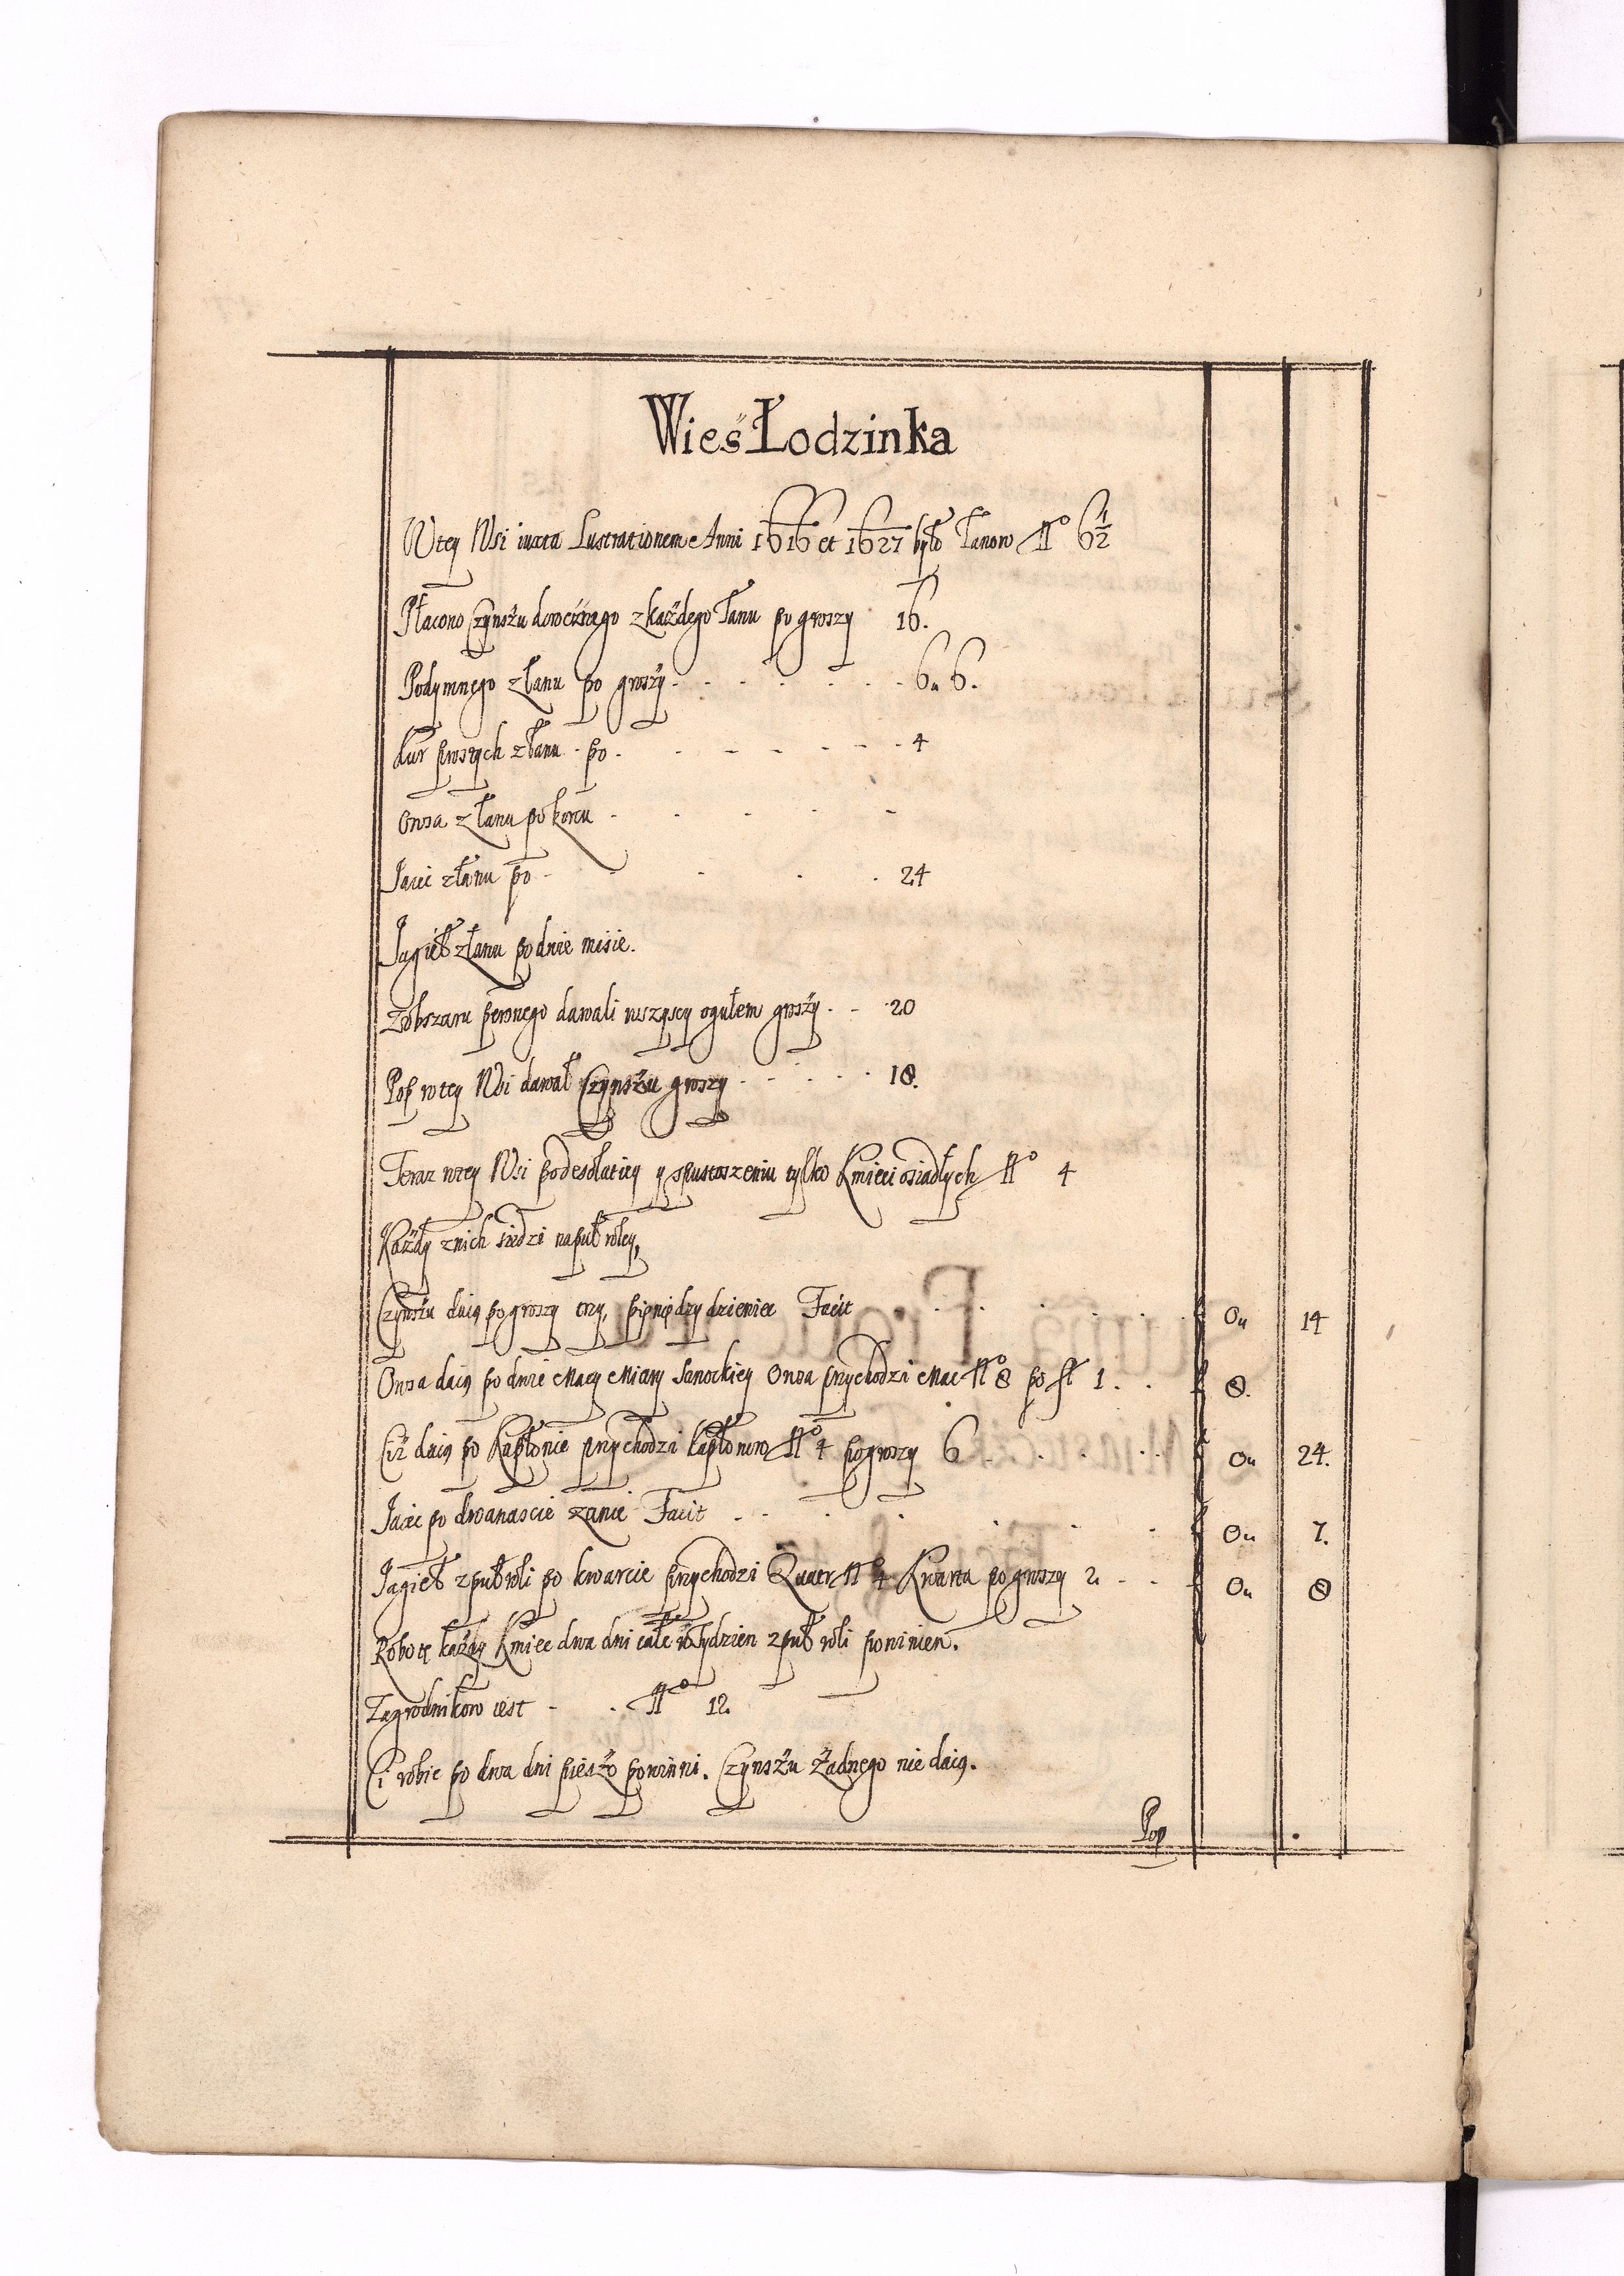 Wieś Łodzinka
W tey Wsi iuxta Lustrationem Anni 1616 et 1627 było Łanow No 6 1/2
Płacono Czynszu dorocznego z każdego Łanu po groszy 16.
Podymnego z Łanu po groszy - - - - - - 6„ 6.
Kur prostych z Łanu - po - - - - - - - 4
Owsa z Łanu po korcu - - - - -
Jaiec z Łanu po - - - - - 24
Jagieł z Łanu po dwie misie.
Z obszaru pewnego dawali wszyscy ogułem groszy - - 20
Pop w tey Wsi dawał Czynszu groszy - - - - 18.
Teraz w tey Wsi po desolatiey y spustoszeniu tylko Kmieci osiadłych No 4
Każdy z nich siedzi na puł roley,
Czynszu daią po groszy trzy, pieniędzy dziewięc Facit - - - - - f 0„ 14
Owsa daią po dwie Macy Miary Sanockiey Owsa przychodzi Mac No 8 po fl 1 . . f 8.
Ciż daią po Kapłonie przychodzi kapłonow No 4 po groszy 6 - - - - f 0„ 24.
Jaiec po dwanascie Facit - - - - - - - f 0„ 7.
Jagieł z puł roli po kwarcie przychodzi Quart No 4 Kwarta po groszy 2 - - - f 0„ 8
Robotę każdy Kmiec dwa dni całe w Tydzien z puł roli powinien.
Zagrodnikow iest - - No 12
Ci robic po dwa dni pieszo powinni. Czynszu żadnego nie daią.
Pop